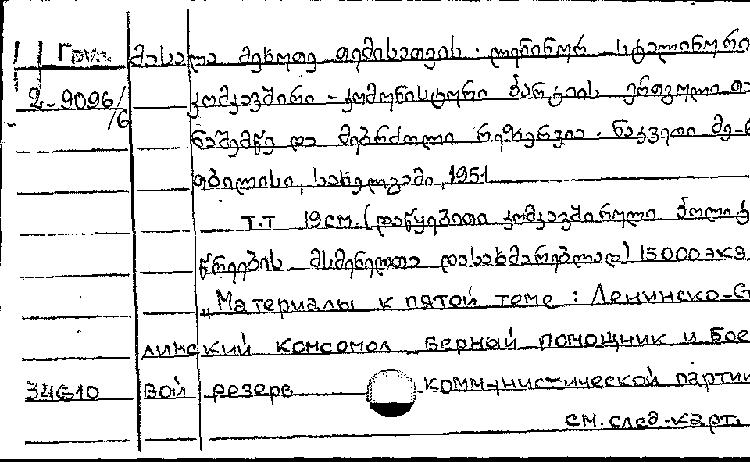 Груз. მასალა მეხუთე თემისათვის: ლენინურ-სტალინური
2-9096/6 კომკავშირი - კომუნისტური პარტიის ერთგული
ნაშემწე და მებრძოლი რეზერვია. ნაკვეთი მე-
თბილისი, სახელგამი, 1951
т.т 19 см. (დაწყებითი კომკავშირული პოლიტ
წრეების მსმენელთა დასახმარებლად) 15000 экз.
„Материалы к пятой теме: Ленинско-Ста
линский комсомол верный помощник и бое
34610 вой резерв коммунистической партии
см. след. карт.